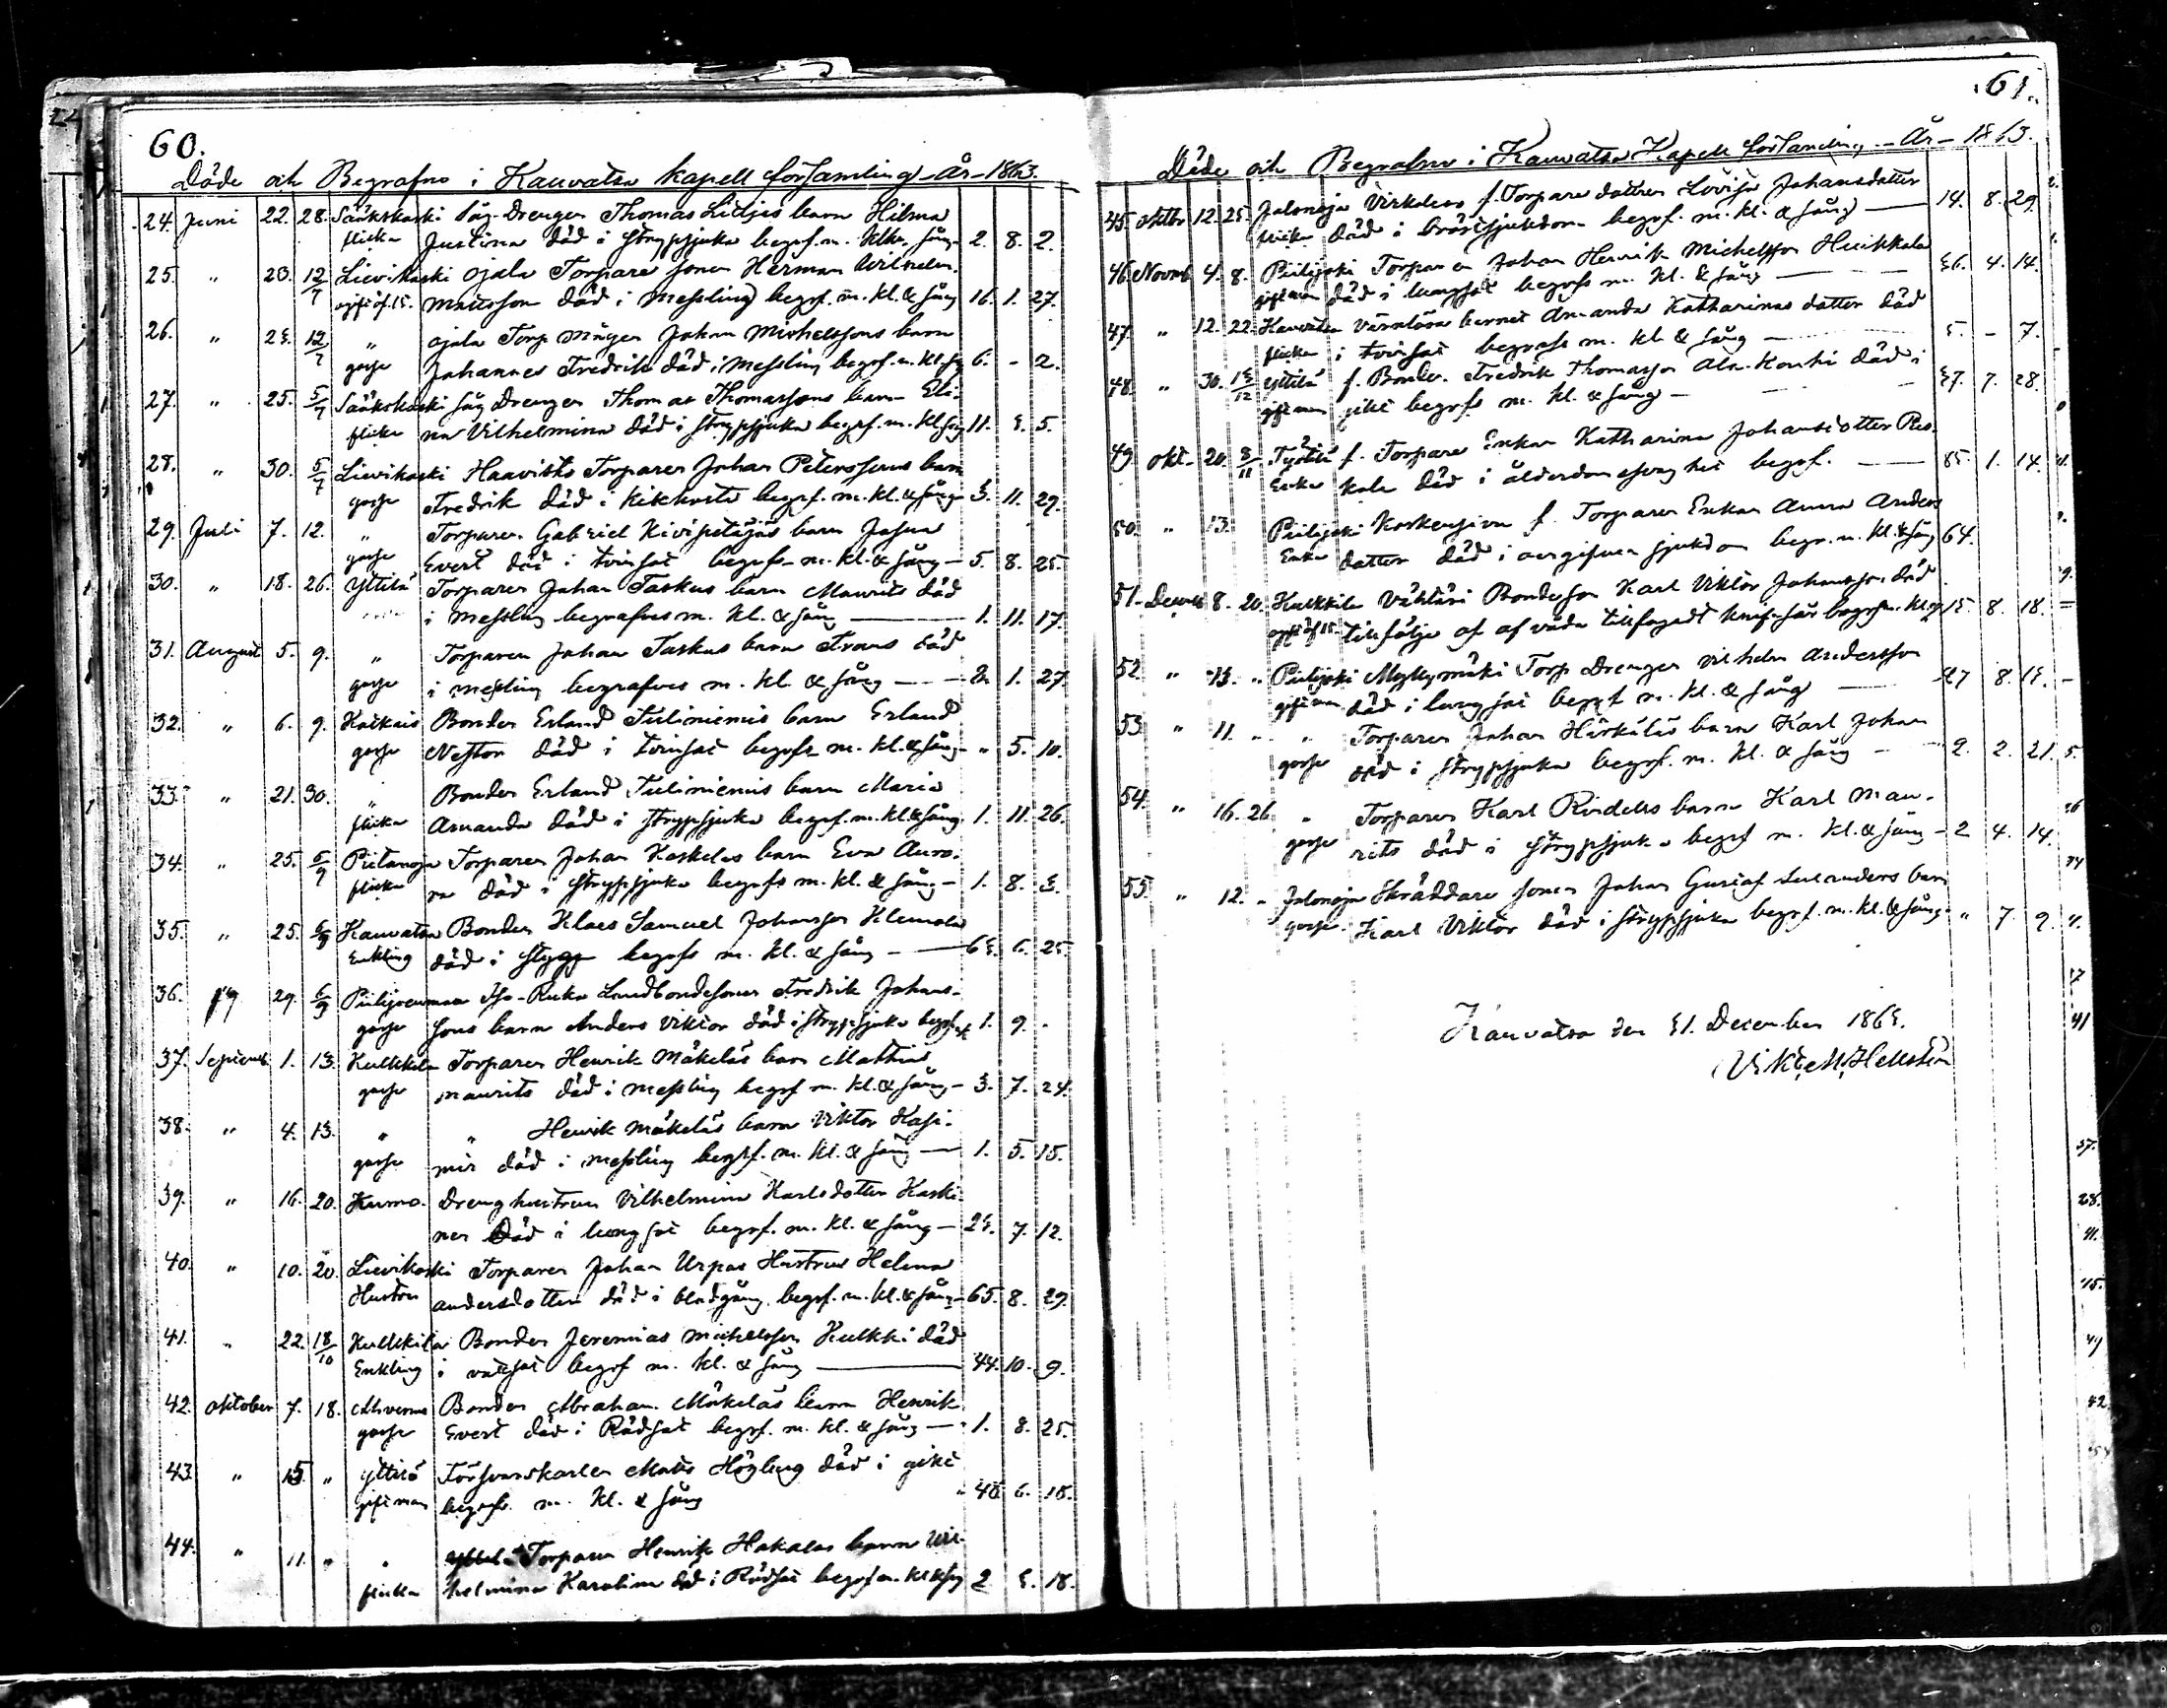 60.
Döde och Begrafne i Kauvatsa kapell församling - År - 1863.
24. Juni 22. 28. Sääkskoski Säg-Drengen Thomas barn Hilma
flicka Justina död i strypsjuka begrf. m. Klk. sång 2. 8. 2.
25. " 23. 12/7 Lievikoski Ojala Torpare sonen Herman Wilhelm
ogift öf. 15. Mattsson död i Messling begrf. m. kl. & sång 16. 1. 27.
26. " 23. 12/7 " Ojala Torp mågen Johan Michelssons barn
gosse Johannes Fredrik död i Messling begrf. m. kl. sg 6. - 2.
27. " 25. 5/7 Sääkskoski såg Drengen Thomas Thomassons barn Eli-
flicka na Vilhelmina död i strypsjuka begrf. m. kl. sg 11. 3. 5.
28. " 30. 5/7 Lievikoski Haavisto Torparen Johan Peterssons barn
gosse Fredrik död i Kikhosta begrf. m. kl. & sång 3. 11. 29.
29. Juli 7. 12. " Torparen Gabriel Kivipeltos barn
gosse Evert död i tvinsot begrf. m. kl. & sång - 5. 8. 25.
30. " 18. 26. Yttilä Torparen Johan Taskus barn Maurits död
i messling begrafves m. kl. & sång 1. 11. 17.
31. August 5. 9. " Torparen Johan Taskus barn Frans död
gosse i messling begrafves m. kl. & sång 2. 1. 27.
32. " 6. 9. Bonden Erland Tuliniemis barn Erland
gosse Nestor död i tvinsot begrfs m. kl. & sång " 5. 10.
33. " 21. 30. " Bonden Erland Tuliniemis barn Maria
flicka Amanda död i strypsjuka begrf. m. kl. & sång. 1. 11. 26.
34. " 25. 6/9 Torparen Johan Koskelas barn Eva Auro-
flicka ra död i strypsjuka begrfs m. kl. & sång - 1. 8. 3.
35. " 25. 6/9 Kauvatsa Bonden Klaes Samuel Johansson Klemola
Enkling död i begrfs m. kl. & sång - 63. 6. 25.
36. " 29. 6/9 Landbondesonen Fredrik Johans-
gosse sons barn Anders Viktor död i strypsjuka begrf. 1. 9. -
37. Septemb 1. 13. Kulkkila Torparen Henrik Mäkeläs barn Mathias
gosse Maurits död i messling begrf m. kl. & sång - 3. 7. 24.
38. " 4. 13. " " Henrik Mäkeläs barn Viktor Kasi-
gosse mir död i messling begrf. m. kl. & sång - 1. 5. 15.
39. " 16. 20. Kumo. Dreng hustrun Vilhelmina Karlsdotter Koski-
nen Död i lungsot begrf. m. kl. & sång - 23. 7. 12.
40. " 10. 20. Lievikoski Torparen Johan Urpos Hustru Helena
Hustru Andersdotter död i blodgång begrf. m. kl. & sång - 65. 8. 29.
41. " 22. 18/10 Kulkkila Bonden Jeremias Michelsson Kulkki död
Enkling i begrf m. kl. & sång 44. 10. 9.
42. Oktober 7. 18. Ahvenus Bonden Abraham Mäkeläs barn Henrik
gosse Evert död i Rödsot begrf. m. kl. & sång - 1. 8. 25.
43. " 15 " Yttilä Försvarskarlen Matts Högling död i gikt
gift man begrfs. m. kl. & sång 48. 6. 18.
44. " 11. " " Torparen Henrik Hakalas barn Vil-
flicka helmina Karolina död i Rödsot begrf m. kl & sg 2 3. 18.
61.
Döde och Begrafne i Kauvatsa Kapell församling - År - 1863.
45. Oktbr 12. 25. Jalonoja Virkelas f. Torpare dottren Lovisa Johansdotter
flicka död i bröstsjukdom begrf. m. kl. & sång 14. 8. 29.
46. Novmb 4. 8. Piilijoki Torparen Johan Henrik Michelsson Huikkala
gift man död i lungsot begrfs m. kl. & sång 36. 4. 14.
47. " 12. 22. Kauvatsa Värnlösa barnet Amanda Katharinas dotter död
flicka i tvinsot begrafs m. kl & sång 5. - 7.
48. " 30. 13/12 Yttilä f. Bonden Fredrik Thomasson Ala-Kouhi död i
gift man gikt begrfs m. kl. & sång - 37. 7. 28.
49. okt. 20. 8/11 f. Torpare Enkan Katharina Johansdotter
Enka död i ålderdomssvaghet begrf. 85. 1. 14.
50. " 13. Piilijoki Koskensivu f. Torparen Enkan Anna Anders
Enka dotter död i sjukdom begr. m. kl. & sång 64.
51. Decemb 8. 20. Kulkkila Vähtäri Bondeson Karl Viktor Johansson död
ogift öf 15. tillfölje af af våda tillfogadt knif-sår begrf m. kl. sg 15. 8. 18.
52. " 13. " Piilijoki Myllymäki Torp Drengen Vilhelm Andersson
gift man död i lungsot begrf m. kl. & sång 27 8. 13.
53. " 11. " " Torparen Johan Härkäläs barn Karl Johan
gosse död i strypsjuka begrf. m. kl. & sång - 2. 2. 21.
54. " 16. 26. " Torparen Karl Rindells barn Karl Mau-
gosse rits död i strypsjuka begrf m. kl. & sång - 2 4. 14.
55. " 12. " Jalonoja Skräddare sonen Johan Gustaf barn
gosse Karl Viktor död i strypsjuka begrf. m. kl. & sång " 7. 9.
Kauvatsa den 31. December 1863.
Vikt. M. Hellstén